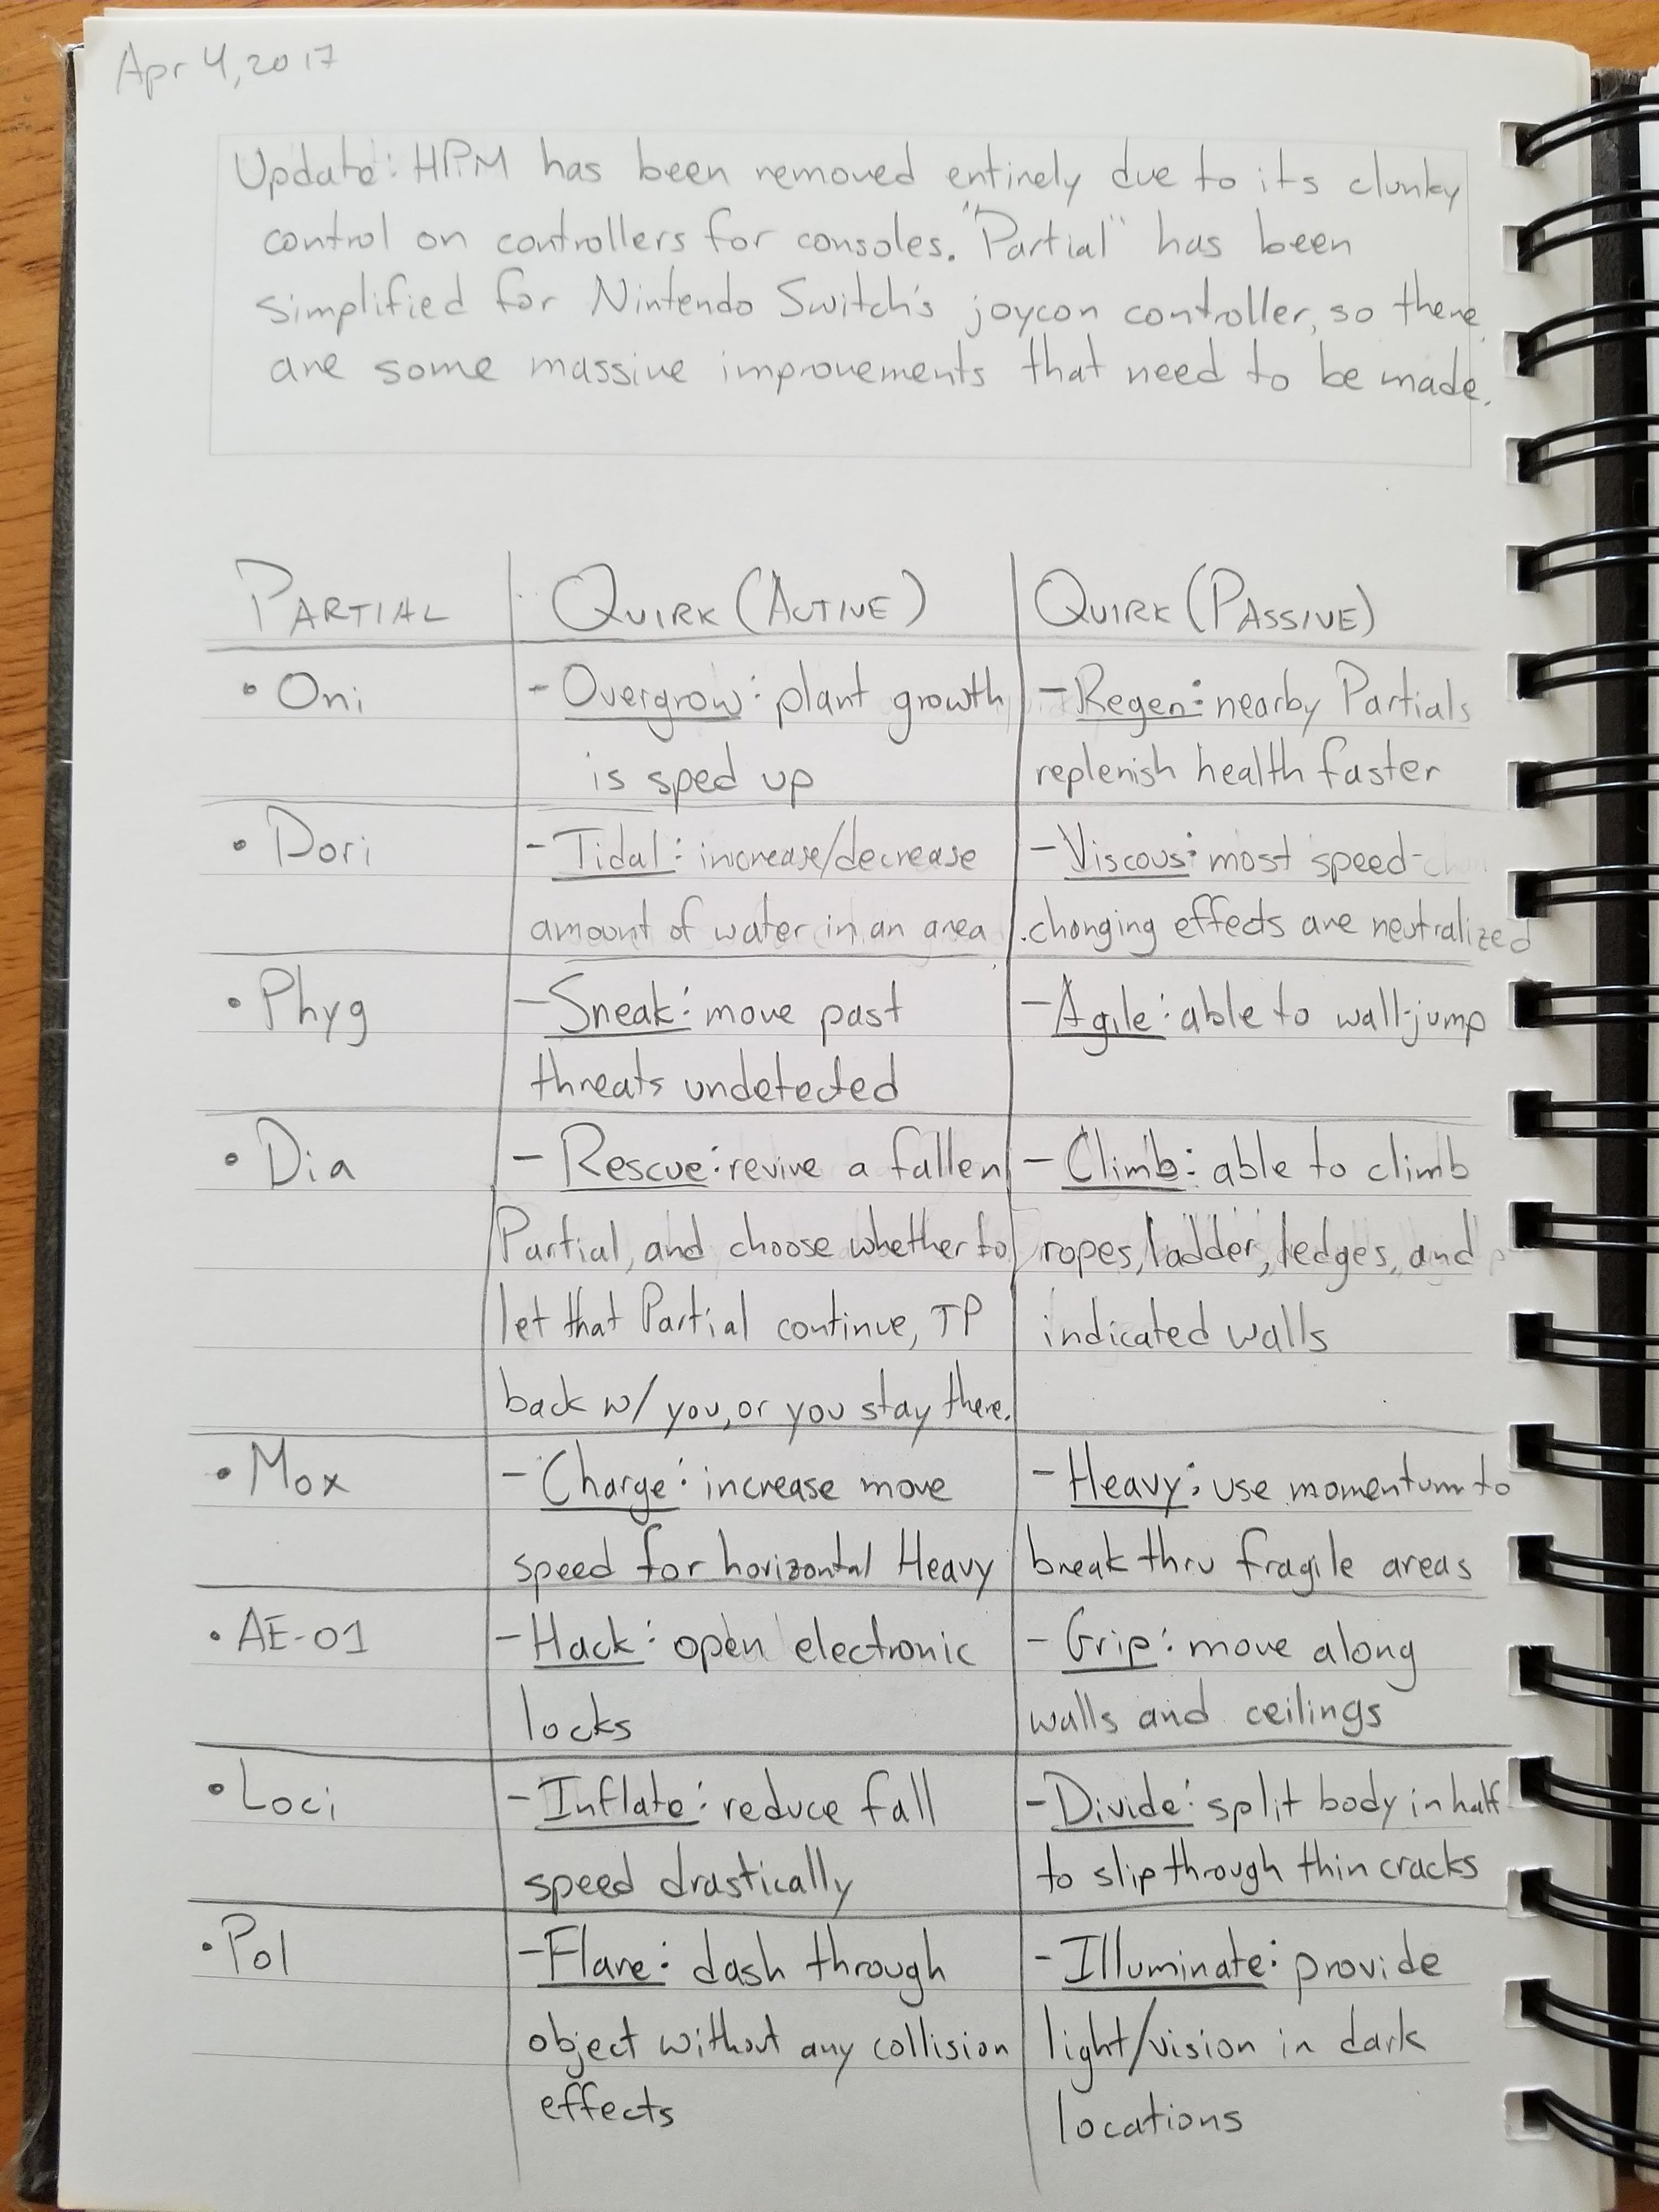 Apr 4, 2017
Update: HPM has been removed entirely due to its clunky
control on controllers for consoles. "Partial" has been
simplified for Nintendo Switch's joycon controller, so there
are some massive improvements that need to be made.
PARTIAL QUIRK (ACTIVE) QUIRK (PASSIVE)
• Oni - Overgrow: plant growth - Regen: nearby Partials
is sped up replenish health faster
• Dori - Tidal: increase/decrease - Viscous: most speed-
amount of water in an area changing effects are neutralized
• Phyg - Sneak: move past - Agile: able to wall-jump
threats undetected
• Dia - Rescue: revive a fallen - Climb: able to climb
Partial, and choose whether to ropes, ladder, ledges, and
let that Partial continue, TP indicated walls
back w/ you, or you stay there.
• Mox - Charge: increase move - Heavy: use momentum to
speed for horizontal Heavy break thru fragile areas
• AE-01 - Hack: open electronic - Grip: move along
locks walls and ceilings
• Loci - Inflate: reduce fall - Divide: split body in half
speed drastically to slip through thin cracks
• Pol - Flare: dash through - Illuminate: provide
object without any collision light/vision in dark
effects locations